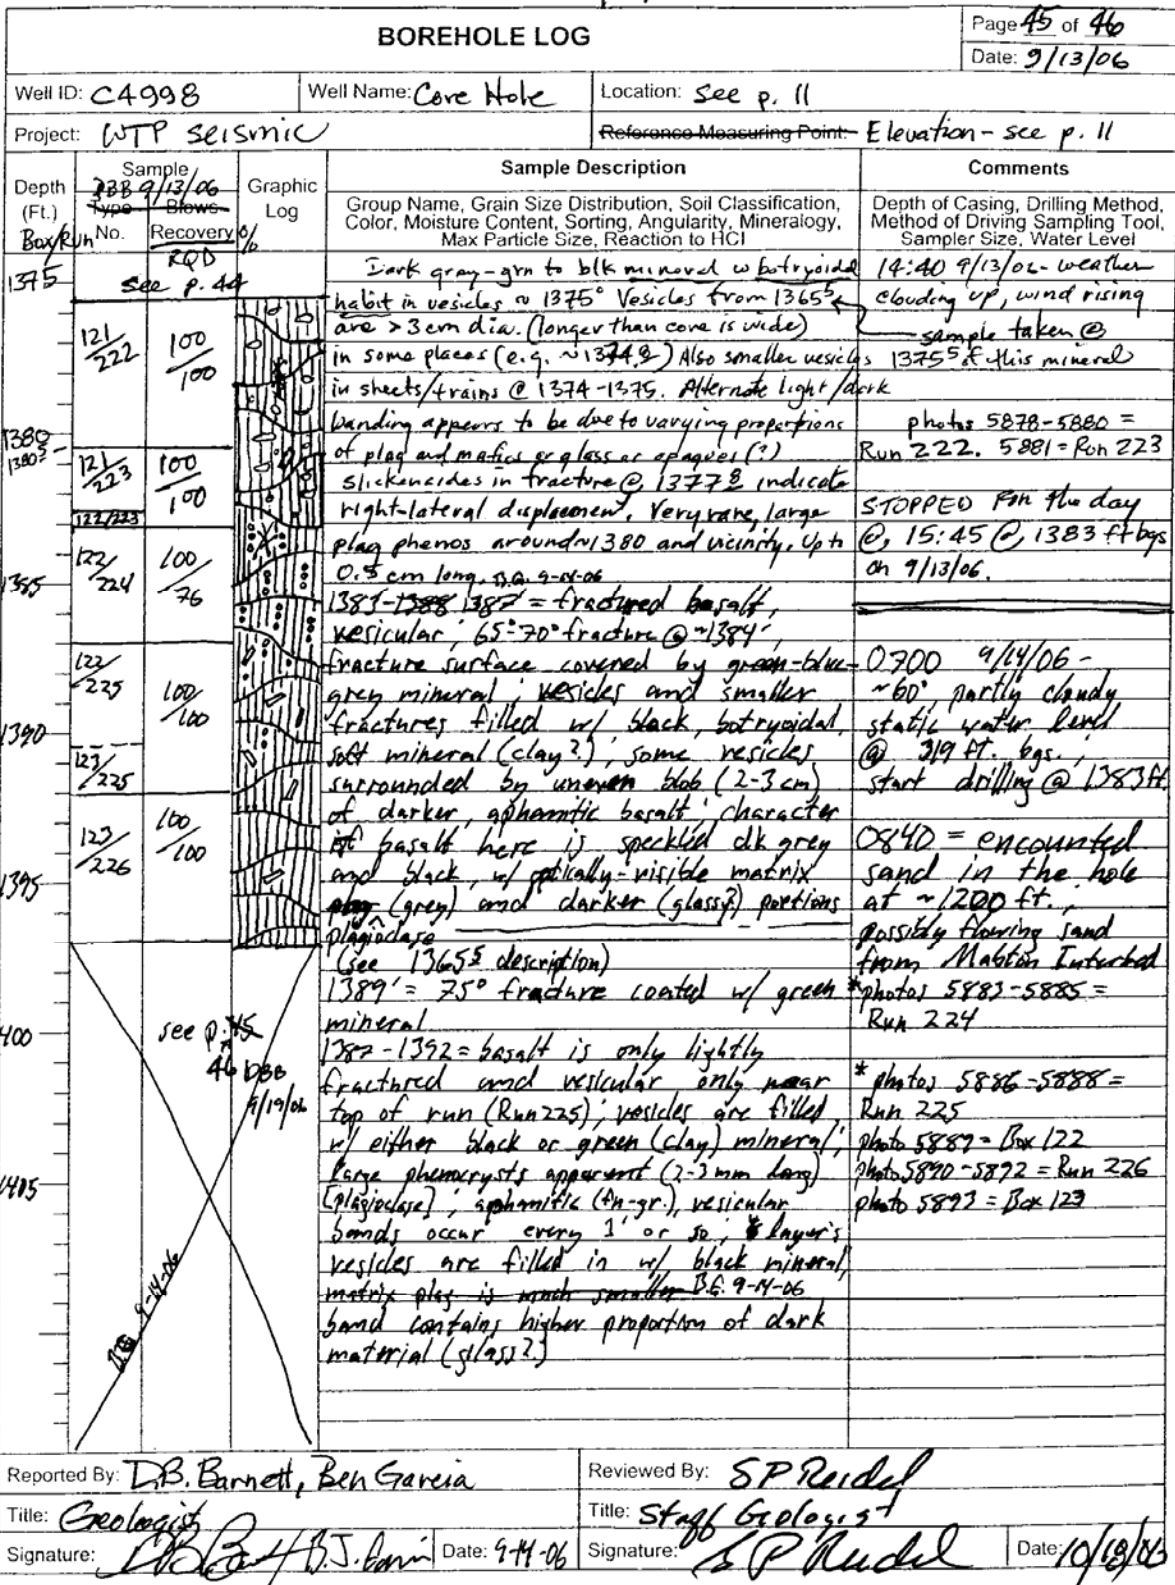 BOREHOLE LOG
Page 45 of 46
Date: 9/13/06
Well ID: C4998
Well Name: Core Hole
Location: See p. 11
Project: WTP Seismic
Reference Measuring Point: Elevation - see p. 11
Depth
(Ft.)
Box/Run
Sample
DBB 9/13/06
Type Blows
No. Recovery %
RQD
Graphic
Log
Sample Description
Group Name, Grain Size Distribution, Soil Classification,
Color, Moisture Content, Sorting, Angularity, Mineralogy,
Max Particle Size, Reaction to HCl
Comments
Depth of Casing, Drilling Method,
Method of Driving Sampling Tool,
Sampler Size, Water Level
1375
see p. 44
121/222 100/100
1380
121/223 100/100
122/223
122/224 100/76
1385
122/225 100/100
1390
123/225
123/226 100/100
1395
400
see p. 45
46 DBB
9/19/06
1405
BG 9-14-06
Dark gray-grn to blk mineral w botryoidal
habit in vesicles ~ 1375° Vesicles from 1365⁵
are > 3 cm dia. (longer than core is wide)
in some places (e.g. ~1374.8) Also smaller vesicles
in sheets/trains @ 1374-1375. Alternate light/dark
banding appears to be due to varying proportions
of plag and mafics or glass or opaques (?)
slickensides in fracture @ 1377⁸ indicate
right-lateral displacement. Very rare, large
plag phenos around ~1380 and vicinity. Up to
0.5 cm long. B.G. 9-14-06
1383-1388 1387' = fractured basalt,
vesicular; 65°-70° fracture @ ~1384',
fracture surface covered by green-blue-
grey mineral; vesicles and smaller
fractures filled w/ black, botryoidal,
soft mineral (clay?); some vesicles
surrounded by uneven blob (2-3 cm)
of darker, aphanitic basalt; character
of basalt here is speckled dk grey
and black, w/ optically-visible matrix
plag (grey) and darker (glassy?) portions
plagioclase
(see 1365⁵ description)
1389' = 75° fracture coated w/ green
mineral
1387-1392 = basalt is only lightly
fractured and vesicular only near
top of run (Run 225); vesicles are filled
w/ either black or green (clay) mineral;
large phenocrysts apparent (2-3 mm long)
[plagioclase]; aphanitic (fn-gr.), vesicular
bands occur every 1' or so; layer's
vesicles are filled in w/ black mineral,
matrix plag is much smaller B.G. 9-14-06
band contains higher proportion of dark
material (glass?)
14:40 9/13/06 - weather
clouding up, wind rising
sample taken @
1375⁵ of this mineral
photos 5878-5880 =
Run 222. 5881 = Run 223
STOPPED For the day
@ 15:45 @ 1383 ft bgs
on 9/13/06.
0700 9/14/06 -
~60° partly cloudy
static water level
@ 319 ft. bgs.;
start drilling @ 1383 ft.
0840 = encountered
sand in the hole
at ~1200 ft.;
possibly flowing sand
from Mabton Interbed
*photos 5883-5885 =
Run 224
* photos 5886-5888 =
Run 225
photo 5889 = Box 122
photo 5890-5892 = Run 226
photo 5893 = Box 123
Reported By: D.B. Barnett, Ben Garcia
Reviewed By: SP Reidel
Title: Geologist
Title: Staff Geologist
Signature: Date: 9-14-06
Signature: SP Reidel Date: 10/18/06